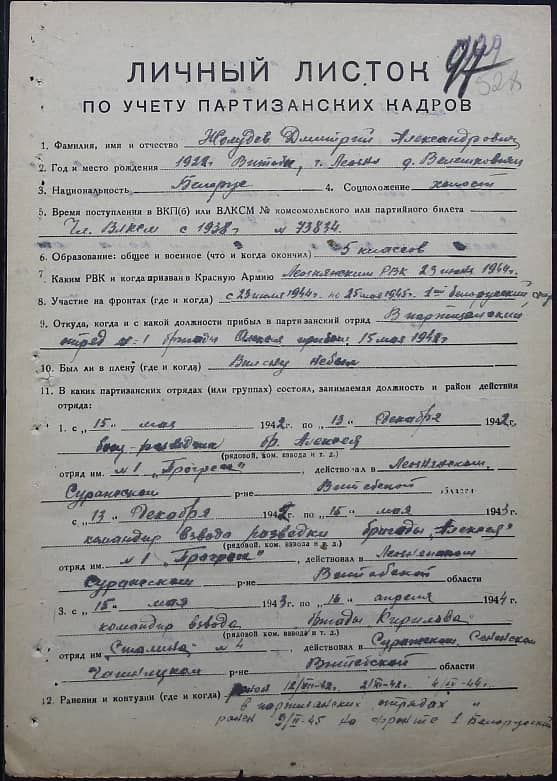 ЛИЧНЫЙ ЛИСТОК
528
ПО УЧЕТУ ПАРТИЗАНСКИХ КАДРОВ
1. Фамилия, имя и отчество Жолудев Дмитрий Александрович
2. Год и место рождения 1922г д. Велешковичи
3. Национальность Белорус 4. Соцположение холост
5. Время поступления в ВКП(б) или ВЛКСМ № комсомольского или партийного билета
Чл. Влксм с 1938г № 73834.
6. Образование: общее и военное (что и когда окончил) 5 классов
7. Каким РВК и когда призван в Красную Армию Лиозненским РВК 23 июня 1944г.
8. Участие на фронтах (где и когда) с 23 июня 1944г. по 25 мая 1945г. 1й белорусский
9. Откуда, когда и с какой должности прибыл в партизанский отряд В партизанский
отряд № 1 бригады Алексея прибыл 15 мая 1942г
10. Был ли в плену (где и когда) В плену небыл
11. В каких партизанских отрядах (или группах) состоял, занимаемая должность и район действия
отряда:
1. с „15“ мая 1942 г. по „13“ Декабря 1942 г.
разведки бр. Алексея
(рядовой, ком. взвода и т. д.)
отряд им. № 1 „Прогресс“, действовал в Лиозненском
Суражском р-не Витебской области
с „13“ Декабря 1942 г. по „15“ мая 1943 г.
командир взвода разведки бригады „Алексея“
(рядовой, ком. взвода и т. д.)
отряд им. № 1 „Прогресс“, действовал в Лиозненском
Суражском р-не Витебской области
3. с „15“ мая 1943 г. по „16“ апреля 1944 г.
командир взвода бригады Кирилова
(рядовой, ком. взвода и т. д.)
отряд им „Сталина“ № 4, действовал в Суражском, Сенненском
Чашницком р-не Витебской области
12. Ранения и контузии (где и когда) ранен 12/VII-42. 2/III-42. 4/IV-44г.
в партизанских отрядах
ранен 9/II-45 на фронте 1 Белорусский